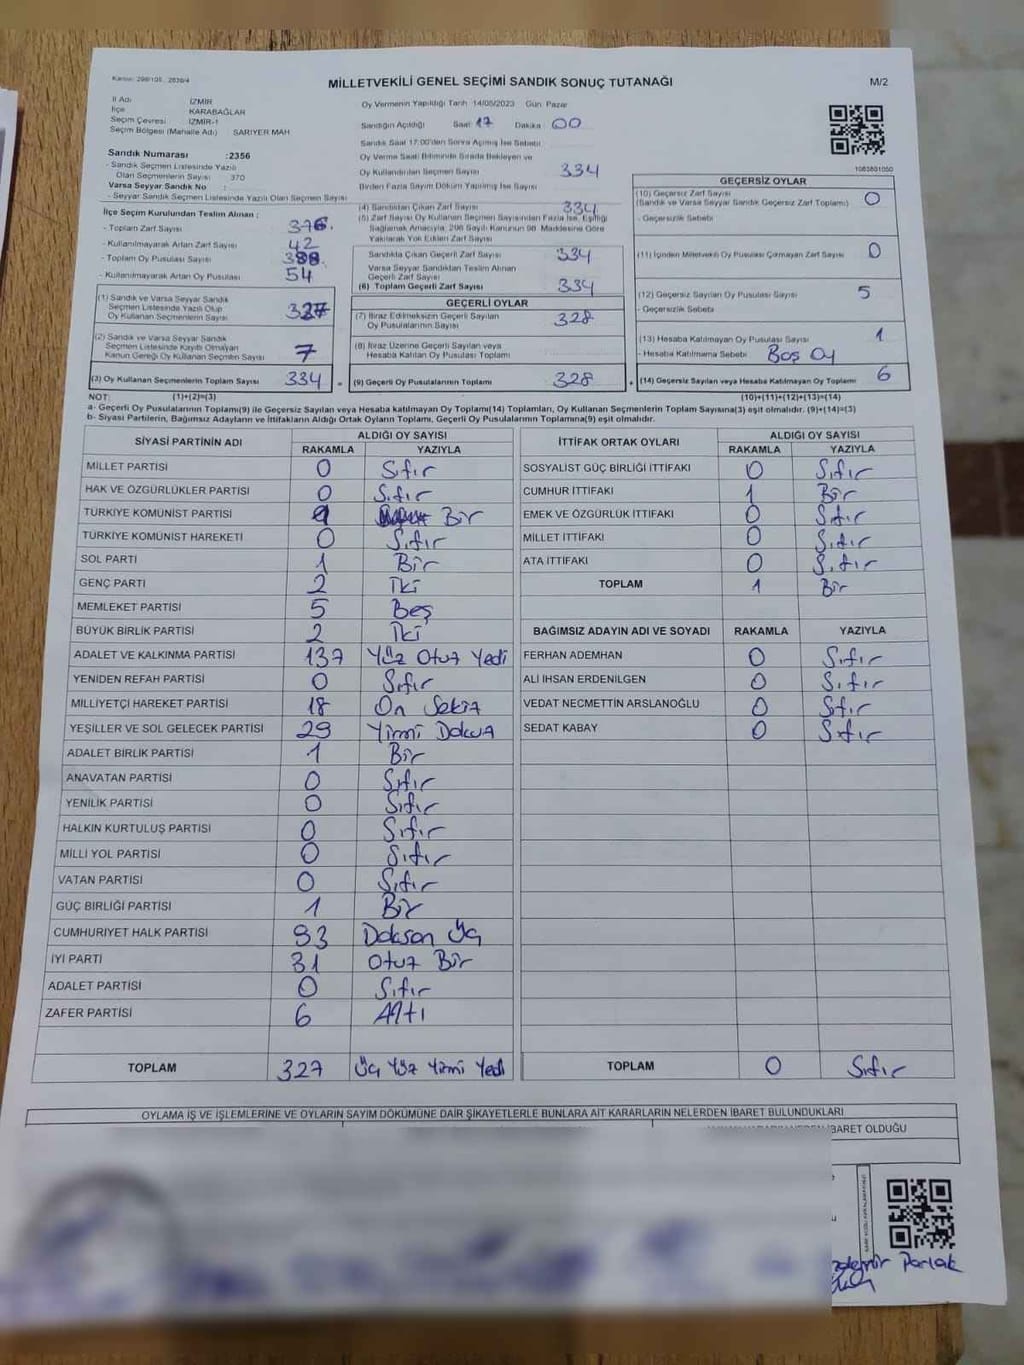 Kanun: 298/105, 2839/4
MİLLETVEKİLİ GENEL SEÇİMİ SANDIK SONUÇ TUTANAĞI
M/2
İl Adı İZMİR
İlçe KARABAĞLAR
Seçim Çevresi İZMİR-1
Seçim Bölgesi (Mahalle Adı) SARIYER MAH
Sandık Numarası :2356
- Sandık Seçmen Listesinde Yazılı
Olan Seçmenlerin Sayısı 370
Varsa Seyyar Sandık No :
- Seyyar Sandık Seçmen Listesinde Yazılı Olan Seçmen Sayısı
İlçe Seçim Kurulundan Teslim Alınan ;
- Toplam Zarf Sayısı 376.
- Kullanılmayarak Artan Zarf Sayısı 42
- Toplam Oy Pusulası Sayısı 388.
- Kullanılmayarak Artan Oy Pusulası 54
(1) Sandık ve Varsa Seyyar Sandık
Seçmen Listesinde Yazılı Olup
Oy Kullanan Seçmenlerin Sayısı 327
(2) Sandık ve Varsa Seyyar Sandık
Seçmen Listesinde Kayıtlı Olmayan
Kanun Gereği Oy Kullanan Seçmen Sayısı 7
(3) Oy Kullanan Seçmenlerin Toplam Sayısı 334
Oy Vermenin Yapıldığı Tarih 14/05/2023 Gün Pazar
Sandığın Açıldığı Saat 17 Dakika 00
Sandık Saat 17:00'den Sonra Açılmış İse Sebebi
Oy Verme Saati Bitiminde Sırada Bekleyen ve
Oy Kullandırılan Seçmen Sayısı 334
Birden Fazla Sayım Döküm Yapılmış İse Sayısı
(4) Sandıktan Çıkan Zarf Sayısı 334
(5) Zarf Sayısı Oy Kullanan Seçmen Sayısından Fazla İse, Eşitliği
Sağlamak Amacıyla; 298 Sayılı Kanunun 98. Maddesine Göre
Yakılarak Yok Edilen Zarf Sayısı
Sandıkta Çıkan Geçerli Zarf Sayısı 334
Varsa Seyyar Sandıktan Teslim Alınan
Geçerli Zarf Sayısı
(6) Toplam Geçerli Zarf Sayısı 334
GEÇERLİ OYLAR
(7) İtiraz Edilmeksizin Geçerli Sayılan
Oy Pusulalarının Sayısı 328
(8) İtiraz Üzerine Geçerli Sayılan veya
Hesaba Katılan Oy Pusulası Toplamı
= (9) Geçerli Oy Pusulalarının Toplamı 328
1083801050
GEÇERSİZ OYLAR
(10) Geçersiz Zarf Sayısı
(Sandık ve Varsa Seyyar Sandık Geçersiz Zarf Toplamı) 0
- Geçersizlik Sebebi
(11) İçinden Milletvekili Oy Pusulası Çıkmayan Zarf Sayısı 0
(12) Geçersiz Sayılan Oy Pusulası Sayısı 5
- Geçersizlik Sebebi
(13) Hesaba Katılmayan Oy Pusulası Sayısı 1
- Hesaba Katılmama Sebebi Boş Oy
+ (14) Geçersiz Sayılan veya Hesaba Katılmayan Oy Toplamı 6
NOT: (1)+(2)=(3) (10)+(11)+(12)+(13)=(14)
a- Geçerli Oy Pusulalarının Toplamı(9) ile Geçersiz Sayılan veya Hesaba katılmayan Oy Toplamı(14) Toplamları, Oy Kullanan Seçmenlerin Toplam Sayısına(3) eşit olmalıdır. (9)+(14)=(3)
b- Siyasi Partilerin, Bağımsız Adayların ve İttifakların Aldığı Ortak Oyların Toplamı, Geçerli Oy Pusulalarının Toplamına(9) eşit olmalıdır.
SİYASİ PARTİNİN ADI ALDIĞI OY SAYISI
RAKAMLA YAZIYLA
MİLLET PARTİSİ 0 Sıfır
HAK VE ÖZGÜRLÜKLER PARTİSİ 0 Sıfır
TÜRKİYE KOMÜNİST PARTİSİ Bir
TÜRKİYE KOMÜNİST HAREKETİ 0 Sıfır
SOL PARTİ 1 Bir
GENÇ PARTİ 2 İki
MEMLEKET PARTİSİ 5 Beş
BÜYÜK BİRLİK PARTİSİ 2 İki
ADALET VE KALKINMA PARTİSİ 137 Yüz Otuz Yedi
YENİDEN REFAH PARTİSİ 0 Sıfır
MİLLİYETÇİ HAREKET PARTİSİ 18 On Sekiz
YEŞİLLER VE SOL GELECEK PARTİSİ 29 Yirmi Dokuz
ADALET BİRLİK PARTİSİ 1 Bir
ANAVATAN PARTİSİ 0 Sıfır
YENİLİK PARTİSİ 0 Sıfır
HALKIN KURTULUŞ PARTİSİ 0 Sıfır
MİLLİ YOL PARTİSİ 0 Sıfır
VATAN PARTİSİ 0 Sıfır
GÜÇ BİRLİĞİ PARTİSİ 1 Bir
CUMHURİYET HALK PARTİSİ 93 Doksan Üç
İYİ PARTİ 31 Otuz Bir
ADALET PARTİSİ 0 Sıfır
ZAFER PARTİSİ 6 Altı
TOPLAM 327 Üç Yüz Yirmi Yedi
İTTİFAK ORTAK OYLARI ALDIĞI OY SAYISI
RAKAMLA YAZIYLA
SOSYALİST GÜÇ BİRLİĞİ İTTİFAKI 0 Sıfır
CUMHUR İTTİFAKI 1 Bir
EMEK VE ÖZGÜRLÜK İTTİFAKI 0 Sıfır
MİLLET İTTİFAKI 0 Sıfır
ATA İTTİFAKI 0 Sıfır
TOPLAM 1 Bir
BAĞIMSIZ ADAYIN ADI VE SOYADI RAKAMLA YAZIYLA
FERHAN ADEMHAN 0 Sıfır
ALİ İHSAN ERDENİLGEN 0 Sıfır
VEDAT NECMETTİN ARSLANOĞLU 0 Sıfır
SEDAT KABAY 0 Sıfır
TOPLAM 0 Sıfır
OYLAMA İŞ VE İŞLEMLERİNE VE OYLARIN SAYIM DÖKÜMÜNE DAİR ŞİKAYETLERLE BUNLARA AİT KARARLARIN NELERDEN İBARET BULUNDUKLARI
İBARET OLDUĞU
Parlak